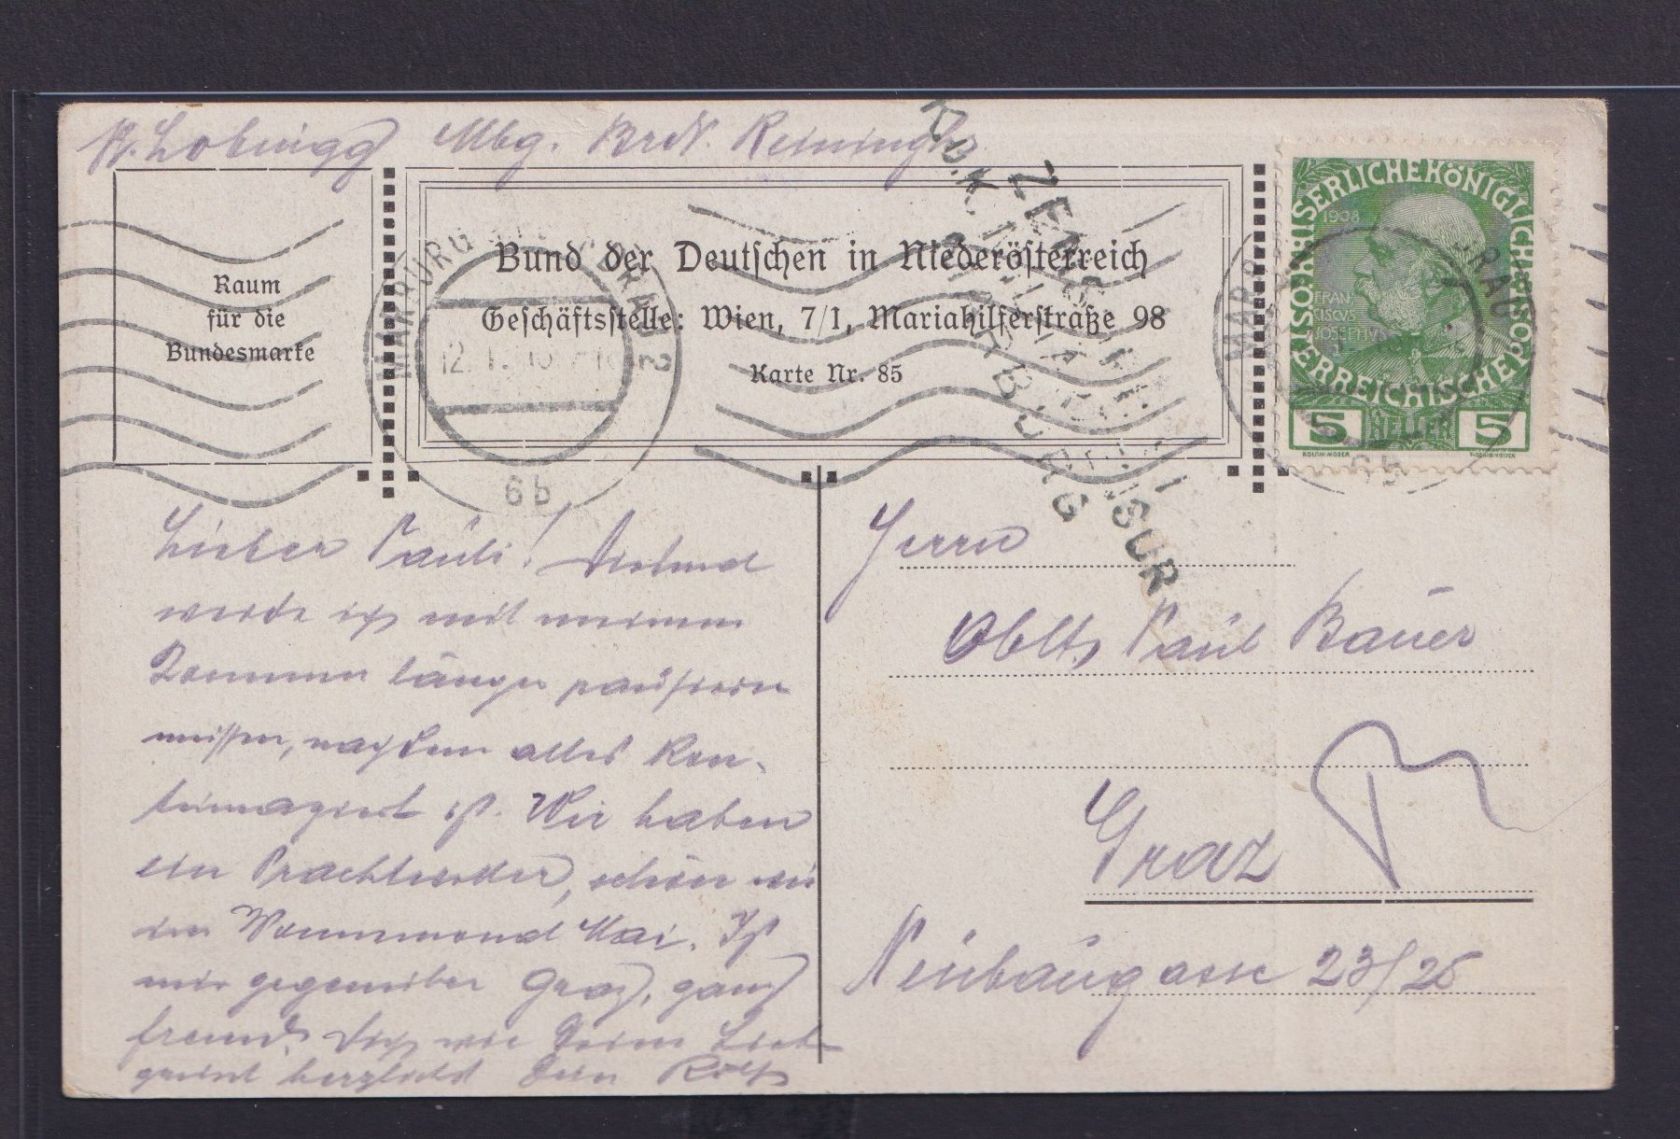 Lobnigg Mbg. Brdt. Reininghs
Raum
für die
Bundesmarke
Bund der Deutschen in Niederösterreich
Geschäftsstelle: Wien, 7/1, Mariahilferstraße 98
Karte Nr. 85
MARBURG DRAU 2
6b
ZENSUR
K.u.K. MARBURG
KAISERLICHE KÖNIGLICHE ÖSTERREICHISCHE POST
1908
FRAN
CISCVS
JOSEPH I
5 HELLER 5
MARB DRAU
6b
Lieber Pauli! Diesmal
werde ich mit meinem
Kommen länger pausieren
müssen, nachdem alles kon-
tumaziert ist. Wir haben
ein Prachtwetter, schön wie
im Wonnemond Mai. Ist
mir gegenüber Graz, ganz
fremd. Dich wie Deine Lieb-
grüßt herzlichst Dein Rolf
Herrn
Oblt. Paul Bauer
Graz
Neubaugasse 23/